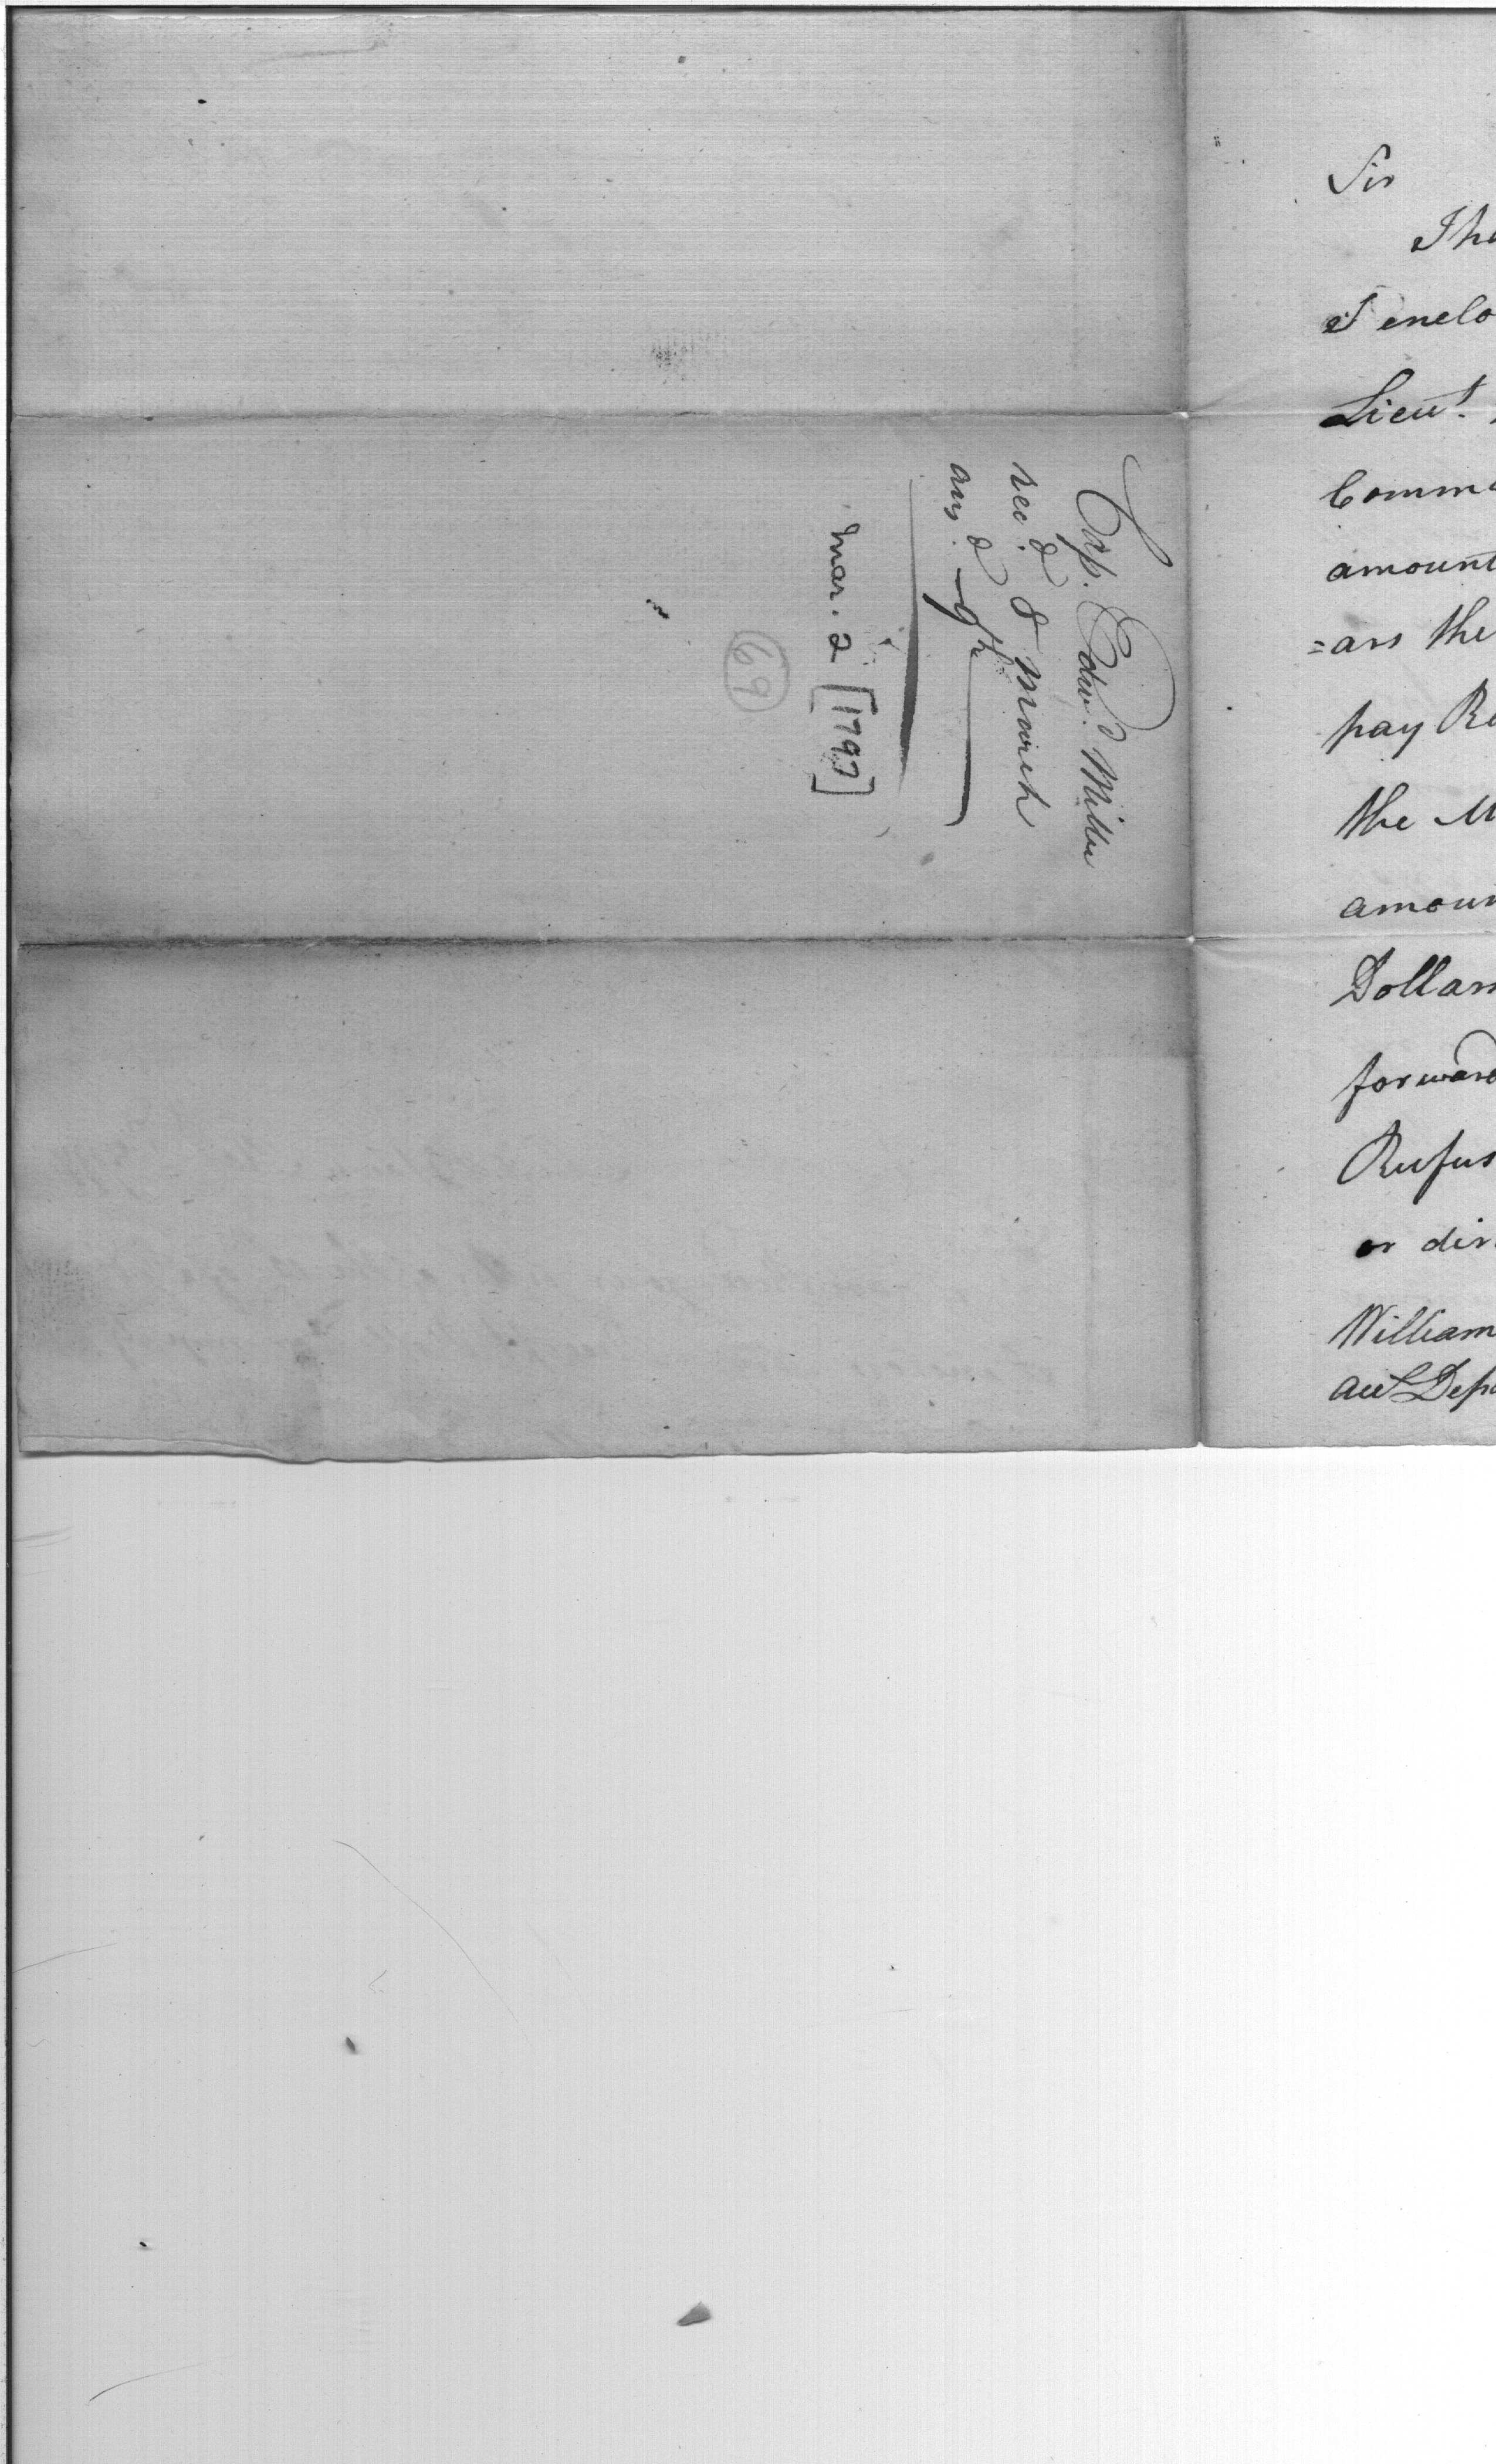 Cap. Edwd. Miller
recd. 8 March
ansd. 9th
Mar. 2 [1797]
69
Sir
I enclo
Lieut.
Comma
amount
=ars the
pay Ro
the M
amoun
Dollars
forward
Rufus
or dir
William